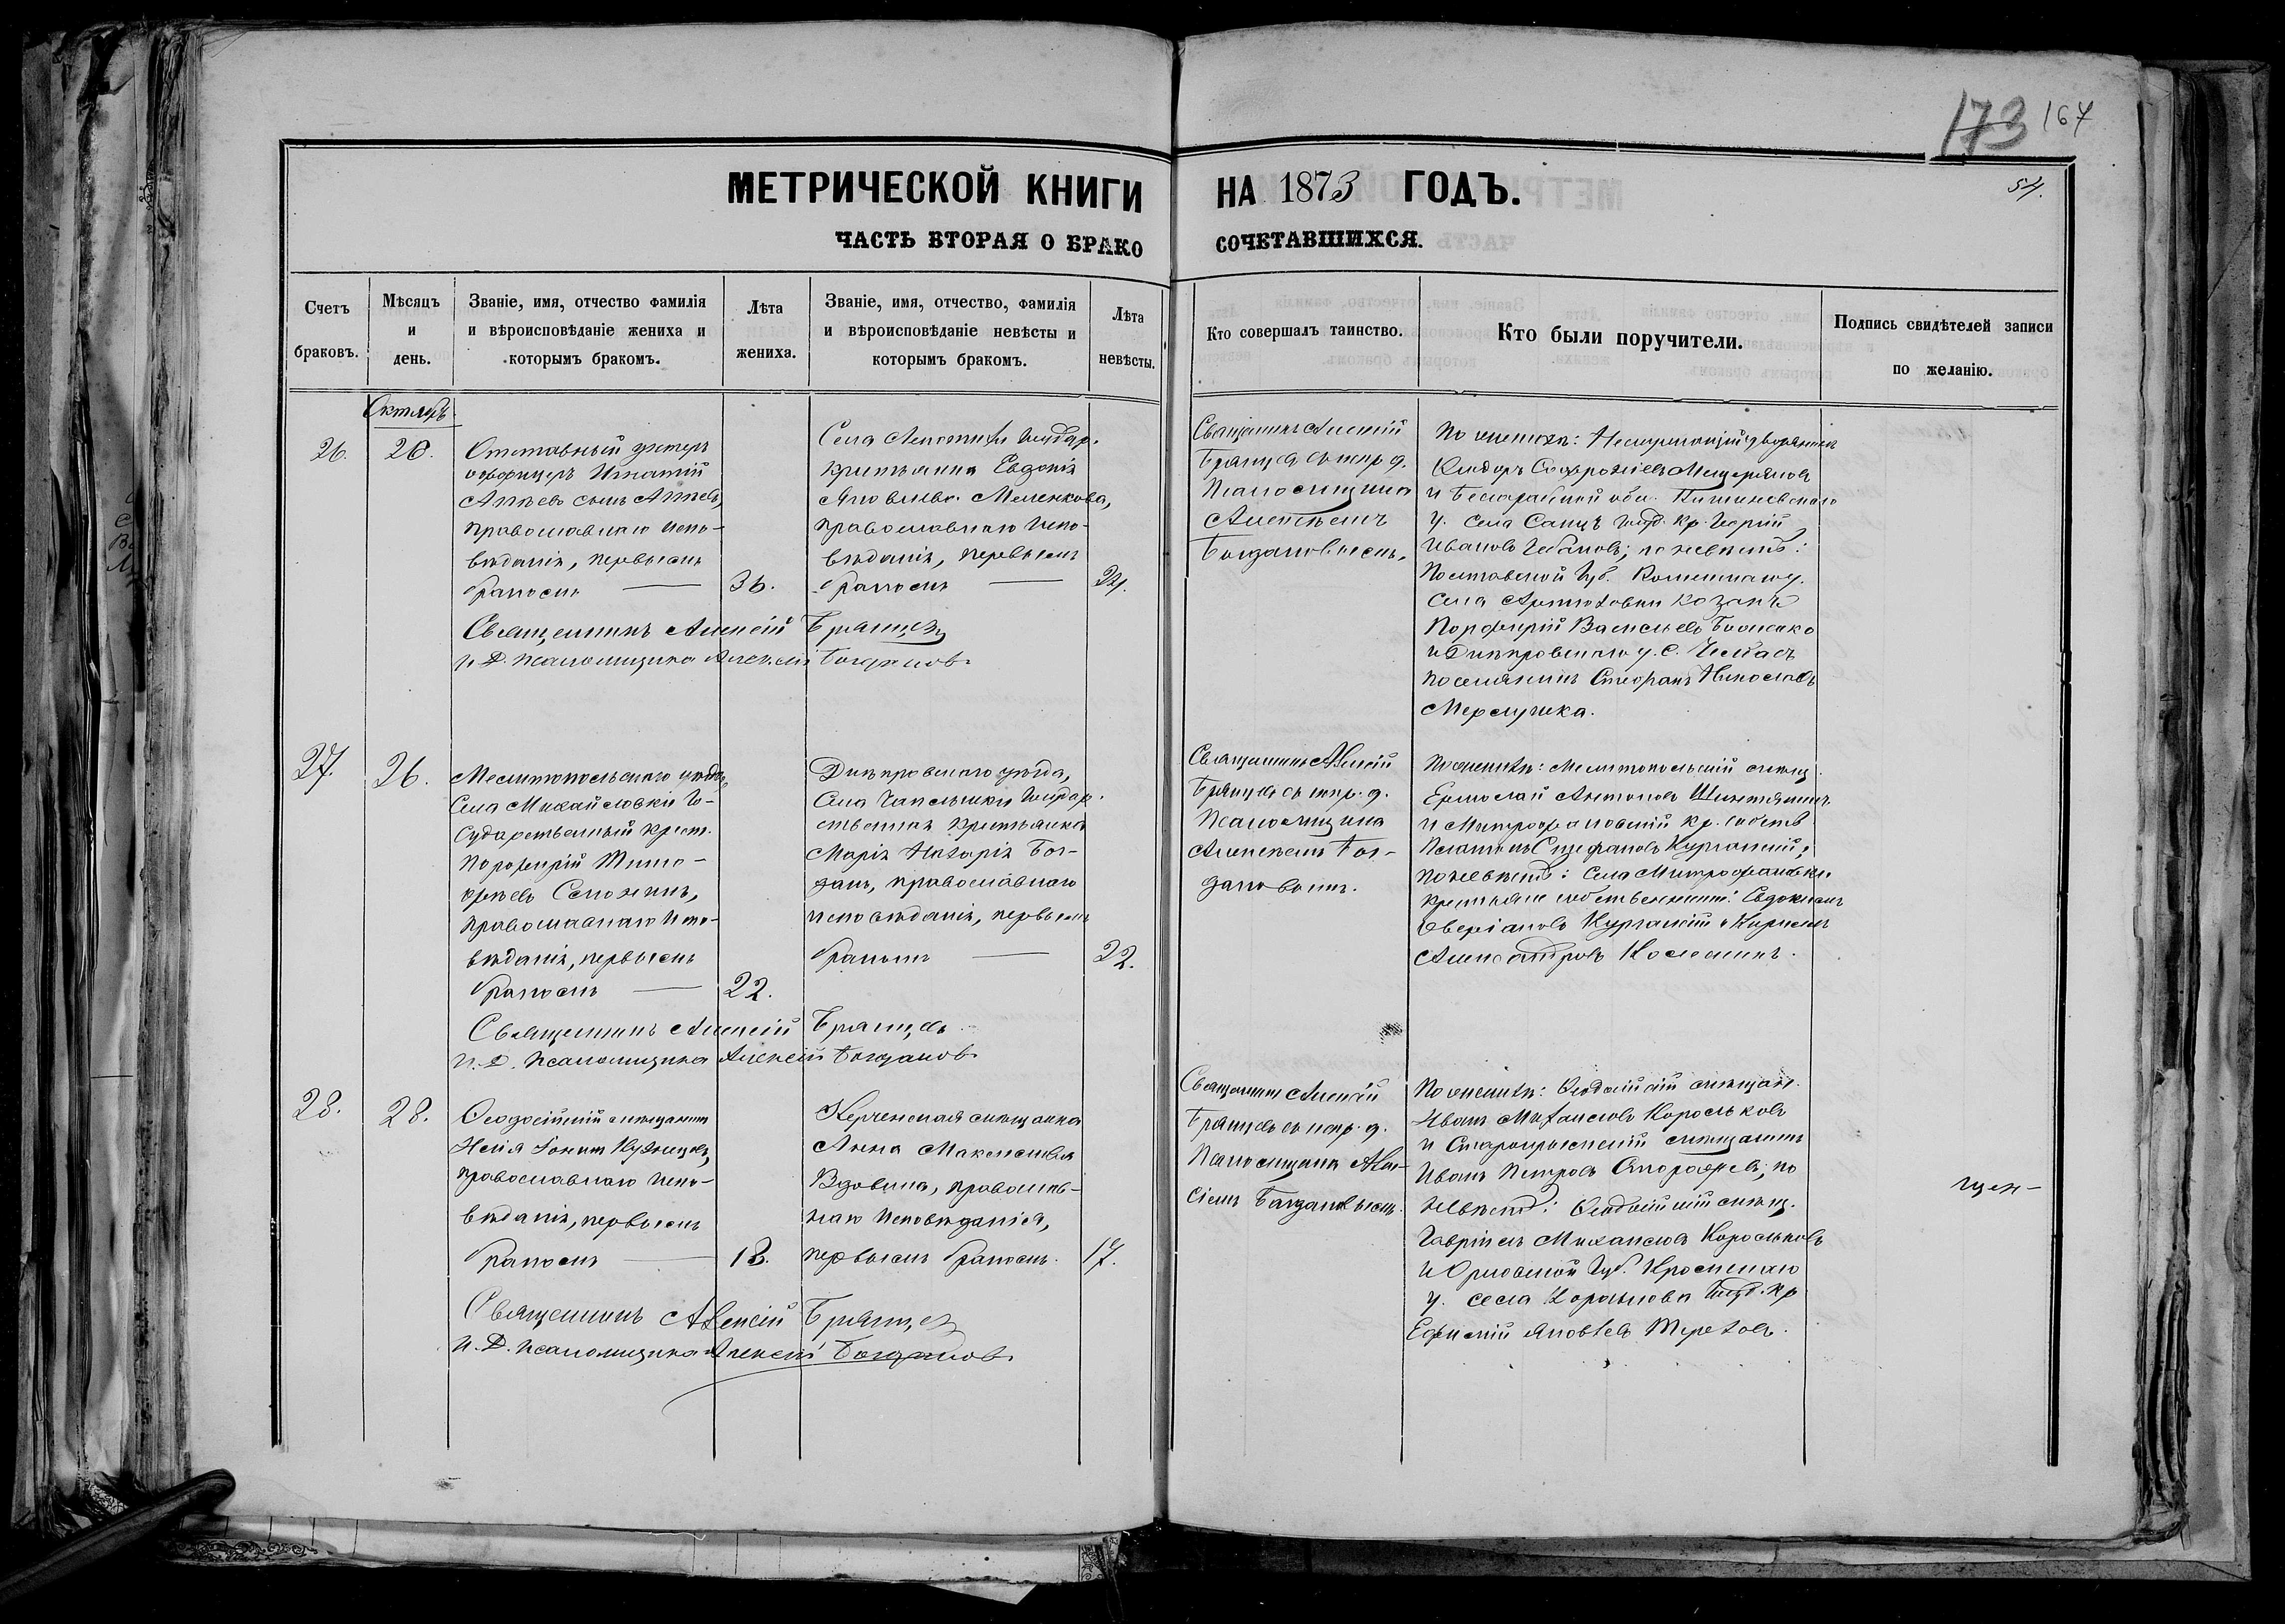 173 167
МЕТРИЧЕСКОЙ КНИГИ НА 1873 ГОДЪ.
54.
ЧАСТЬ ВТОРАЯ О БРАКОСОЧЕТАВШИХСЯ.
Счетъ браковъ.
Мѣсяцъ и день.
Званіе, имя, отчество фамилія и вѣроисповѣданіе жениха и которымъ бракомъ.
Лѣта жениха.
Званіе, имя, отчество, фамилія и вѣроисповѣданіе невѣсты и которымъ бракомъ.
Лѣта невѣсты.
Кто совершалъ таинство.
Кто были поручители.
Подпись свидѣтелей записи по желанію.
Октябрь
26.
20.
Отставный унтеръ
офицеръ Игнатій
православнаго испо-
вѣданія, первымъ
бракомъ
36.
Села
крестьянка Евдокія
Яковлева Меленкова,
православнаго испо-
вѣданія, первымъ
бракомъ
24.
Священникъ Алексій
Брянцевъ съ испр. д.
псаломщика
Алексѣемъ
Богдановымъ.
По женихѣ:
и Бессарабской обл. Кишиневскаго
у. села
Ивановъ по невѣстѣ:
Полтавской Губ.
села козакъ
Порфирій Васильевъ
и Днѣпровскаго у. с.
поселянинъ Стефанъ
Священникъ Алексій Брянцевъ
И. Д. псаломщика Алексѣй Богдановъ
27.
26.
Мелитопольскаго уѣзда,
села Михайловки Го-
сударственный крест.
Порфирій Тимо-
фѣевъ
православнаго испо-
вѣданія, первымъ
бракомъ
22.
Днѣпровскаго уѣзда,
села Чаплынки Государ-
ственная крестьянка
Марія Назарія Бог-
данъ, православнаго
исповѣданія, первымъ
бракомъ
22.
Священникъ Алексій
Брянцевъ съ испр. д.
псаломщика
Алексѣемъ Бог-
дановымъ.
По женихѣ: Мелитопольскій мѣщ.
Ермолай Антоновъ
и Митрофановскій кр. собств.
по невѣстѣ: села Митрофановки
крестьяне собственники: Евдокимъ
Аверіановъ и Кириллъ
Александровъ
Священникъ Алексій Брянцевъ
И. Д. псаломщика Алексѣй Богдановъ
28.
28.
Ѳеодосійскій мѣщанинъ
Кузнецовъ,
православнаго испо-
вѣданія, первымъ
бракомъ
18.
Керченская мѣщанка
Анна Максимова
Вдовина, православ-
наго исповѣданія,
первымъ бракомъ.
17.
Священникъ Алексій
Брянцевъ съ испр. д.
псаломщика Алек-
сіемъ Богдановымъ.
По женихѣ: Ѳеодосійскій мѣщан.
Иванъ Михайловъ Корольковъ
и Старокрымскій мѣщанинъ
Иванъ Петровъ по
невѣстѣ: Ѳеодосійскій мѣщ.
Гавріилъ Михайловъ Корольковъ
и Орловской Губ. Кромскаго
у. села Госуд. кр.
Ефимій Яковлевъ Тереховъ.
Священникъ Алексій Брянцевъ
И. Д. псаломщика Алексѣй Богдановъ